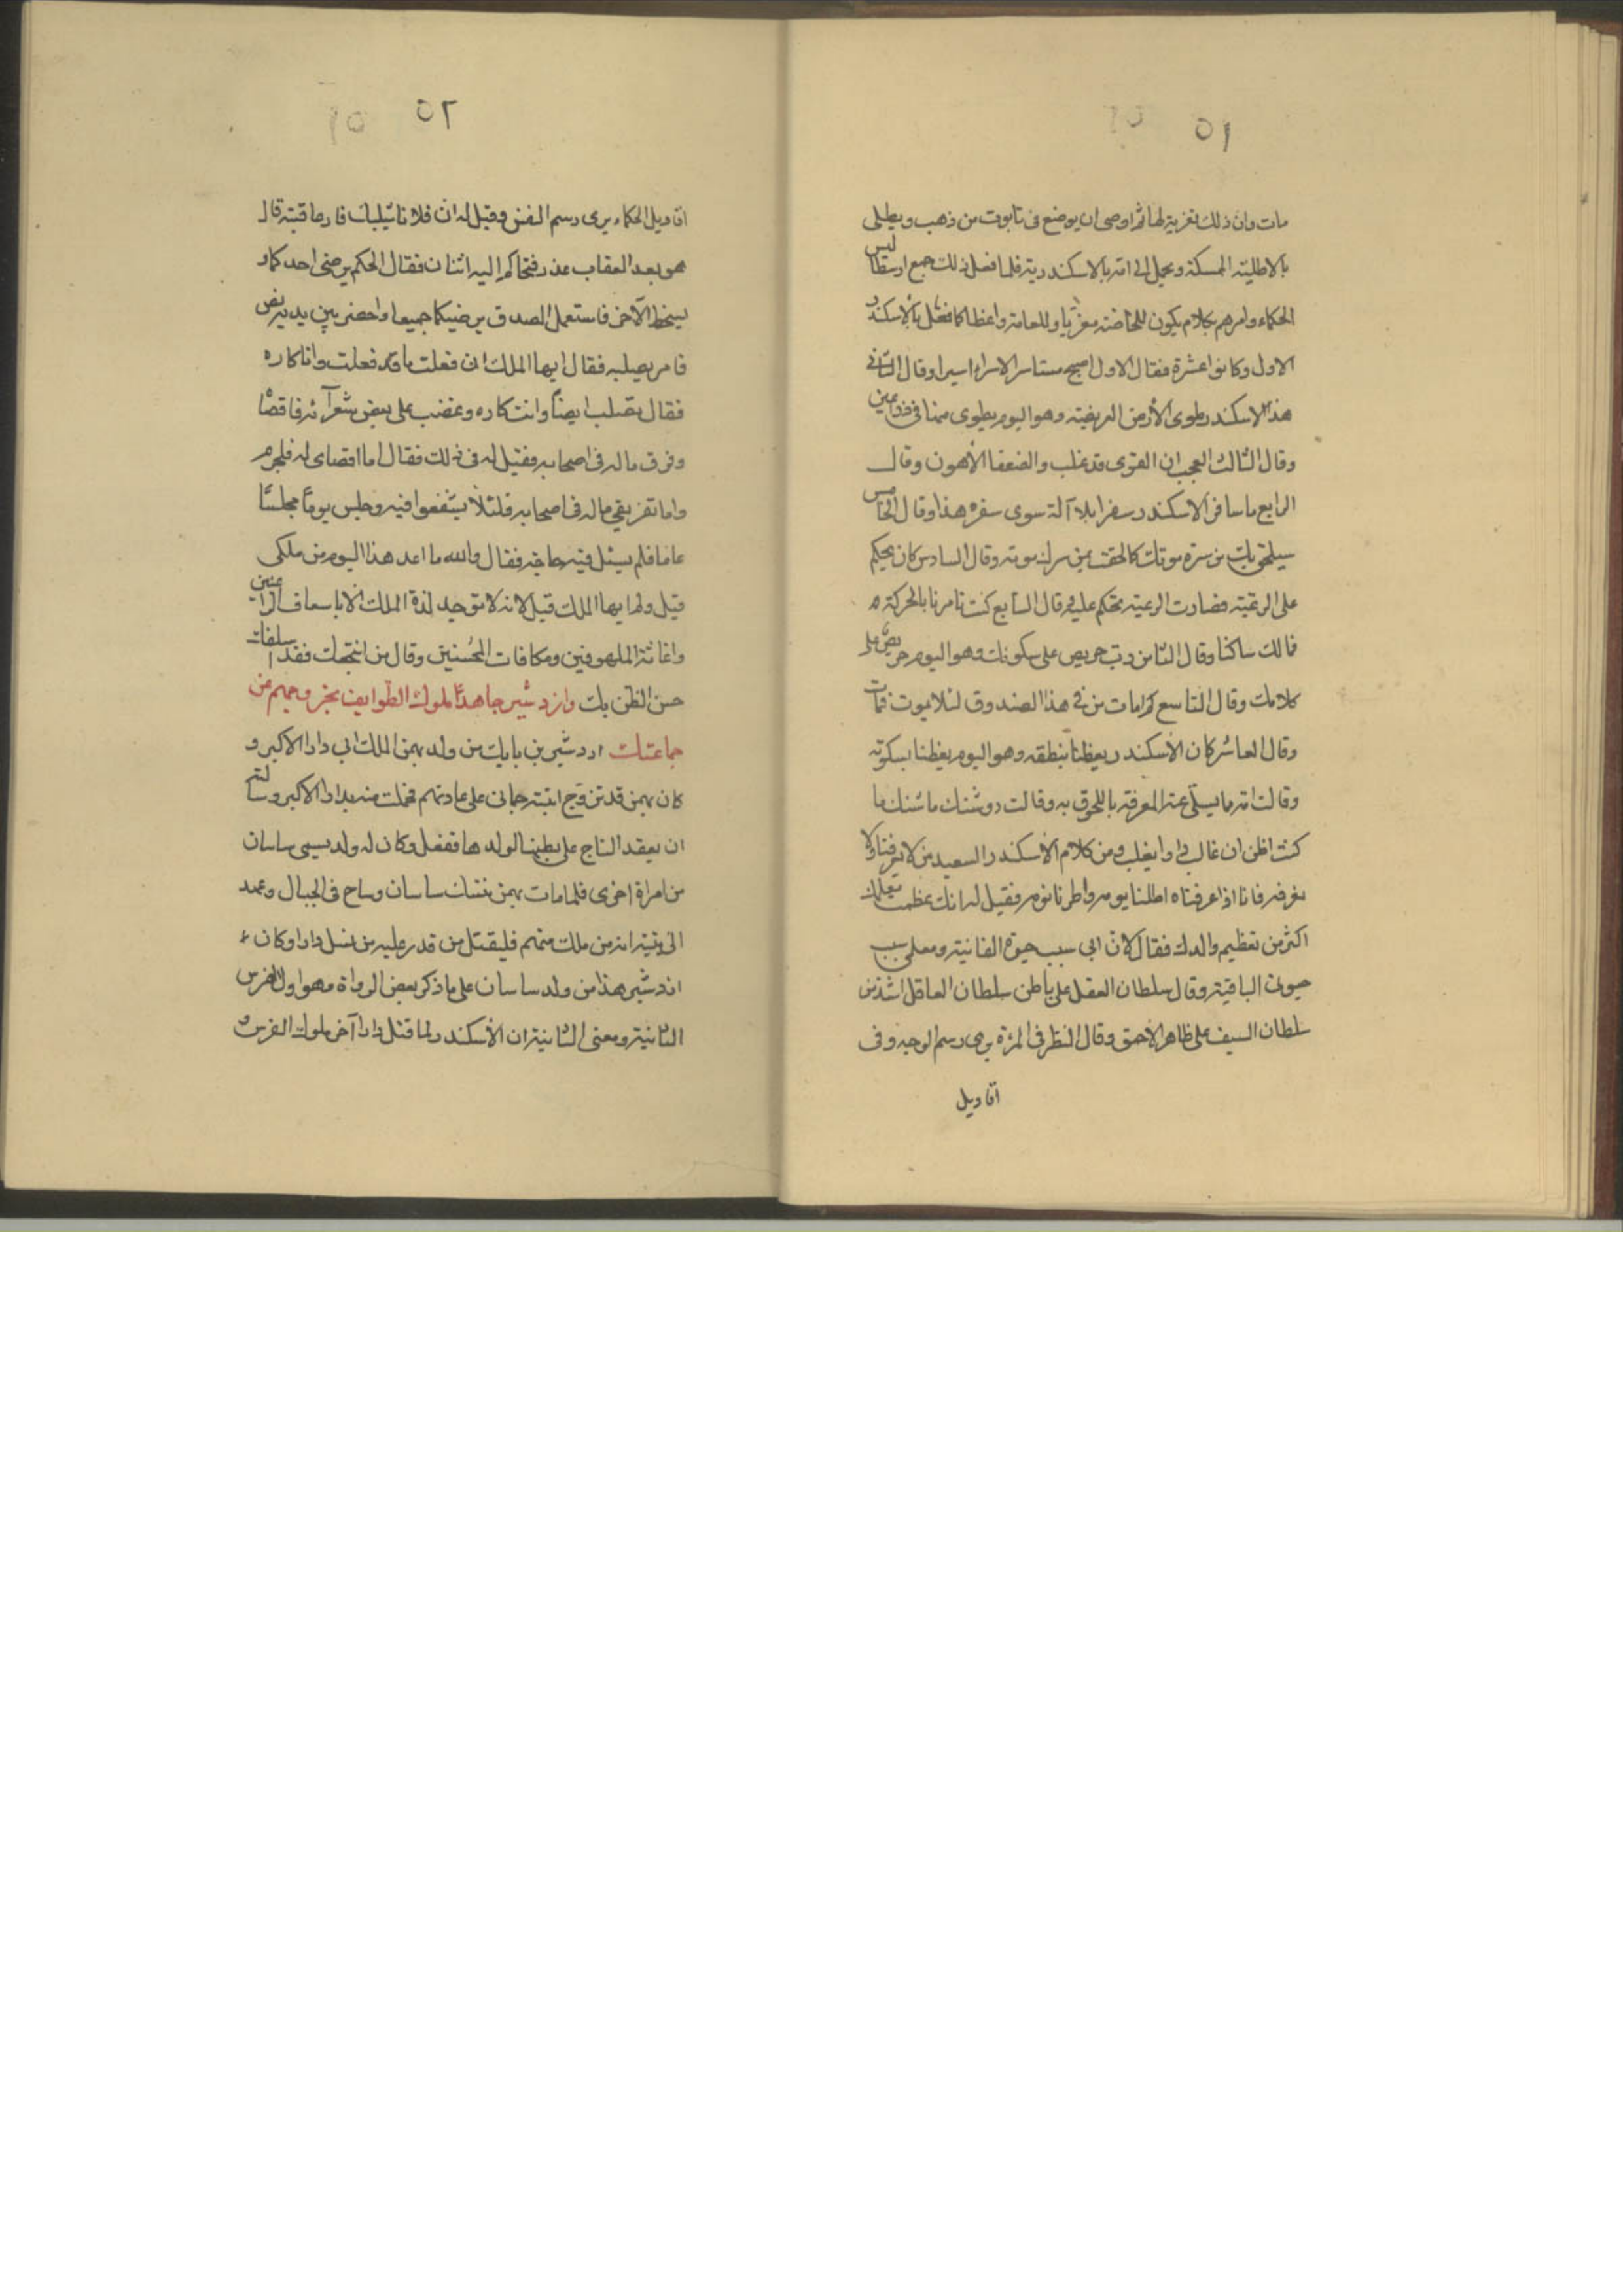 ٥١
مات وان ذلك تعزية لها ثم اوصى ان يوضع فى تابوت من ذهب ويطلى
بالاطلية الممسكة ويحمل الى امه بالاسكندرية فلما فعل ذلك جمع ارسطاليس
الحكماء وامرهم بكلام يكون للخاصة معزيا وللعامة واعظا كما فعل بالاسكندر
الاول وكانوا عشرة فقال الاول اصبح مستاسر الاسراء اسيرا وقال الثانى
هذا الاسكندر طوى الأرض العريضة وهو اليوم يطوى منها فى ذراعين
وقال الثالث العجب ان القوى قد غلب والضعفا لاهون وقال
الرابع ما سافر الاسكندر سفرا بلا آلة سوى سفره هذا وقال الخامس
سيلحق بك من سره موتك كما لحقت بمن سرك موته وقال السادس كان يحكم
على الرعية فصارت الرعية تحكم عليه وقال السابع كنت تامرنا بالحركة
فمالك ساكنا وقال الثامن رب حريص على سكوتك وهو اليوم حريص على
كلامك وقال التاسع كم امات من فى هذا الصندوق لئلا يموت فمات
وقال العاشر كان الأسكندر يعظنا بنطقه وهو اليوم يعظنا بسكوته
وقالت امه ما يسلى عنه المعرفة باللحوق به وقالت روشنك ما
كنت اظن ان غالب دارا يغلب ومن كلام الأسكندر السعيد من لا يعرفنا ولا
نعرفه فانا اذا عرفناه اطلنا يومه واطرنا نومه فقيل له انك عظمت معلمك
اكثر من تعظيم والدك فقال لان ابى سبب حيوة الفانية ومعلمى سبب
حيوتى الباقية وقال سلطان العقل على باطن سلطان العاقل اشد من
سلطان السيف على ظاهر الاحمق وقال النظر فى المرٱة يرى رسم الوجه وفى
اقاويل
٥٢
اقاويل الحكماء يرى رسم النفس وقيل له ان فلانا يثلبك فلو عاقبته قال
هو بعد العقاب عذر فتحاكم اليه اثنان فقال الحكم يرضى احدكما و
يسخط الآخر فاستعملا الصدق يرضيكما جميعا واحضر بين يديه لص
فامر بصلبه فقال ايها الملك انى فعلت ما قد فعلت وانا كاره
فقال تصلب ايضاً وانت كاره وغضب على بعض شعرآئه فاقصاه
وفرق ماله فى اصحابه فقيل له فى ذلك فقال اما اقصاى له فلجرمه
واما تفريقى ماله فى اصحابه فلئلا يشفعوا فيه وجلس يوماً مجلسًا
عاما فلم يسئل فيه حاجة فقال والله ما اعد هذا اليوم من ملكى
قيل ولم ايها الملك قيل لانه لا توجد لذة الملك الا باسعاف الراغبين
واغاثة الملهوفين ومكافات المحُسنين وقال من انتجعك فقد اسلفك
حسن الظن بك وازدشير جاهد ملوك الطوايف بخروجهم من
جماعتك اردشير بن بابك من ولد بهمن الملك ابى دارا الاكبر و
كان بهمن قد تزوج ابنته حمانى على عادتهم فحملت منه بدارا الاكبر وسالته
ان يعقد التاج على بطنها لولدها ففعل وكان له ولد يسمى ساسان
من امراة اخرى فلما مات بهمن تنسك ساسان وساح فى الجبال وعهد
الى بنيه انه من ملك منهم فليقتل من قدر عليه من نسل دارا وكان
اردشير هذا من ولد ساسان على ما ذكر بعض الرواة وهو اول الفرس
الثانية ومعنى الثانية ان الأسكندر لما قتل دارا آخر ملوك الفرس